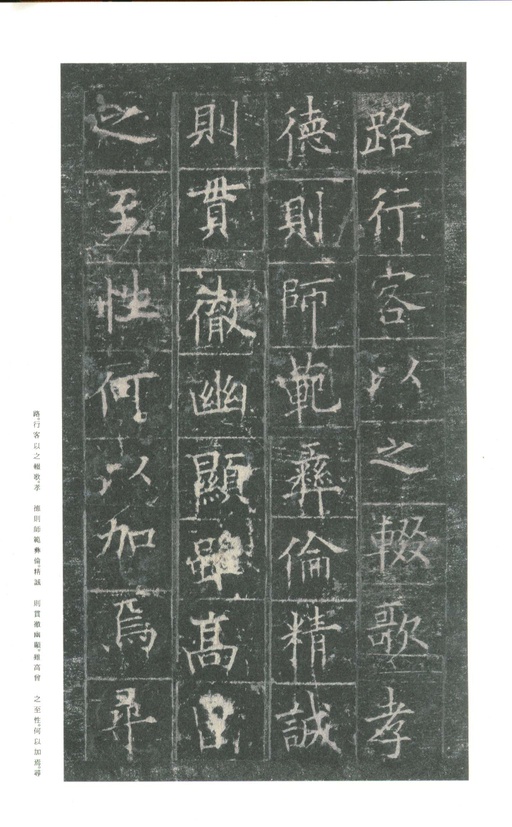 路行客以之輟歌孝
德則師範彝倫精誠
則貫徹幽顯雖高曾
之至性何以加焉尋
路。行客以之輟歌。孝 德則師範彝倫。精誠 則貫徹幽顯。雖高曾 之至性。何以加焉。尋